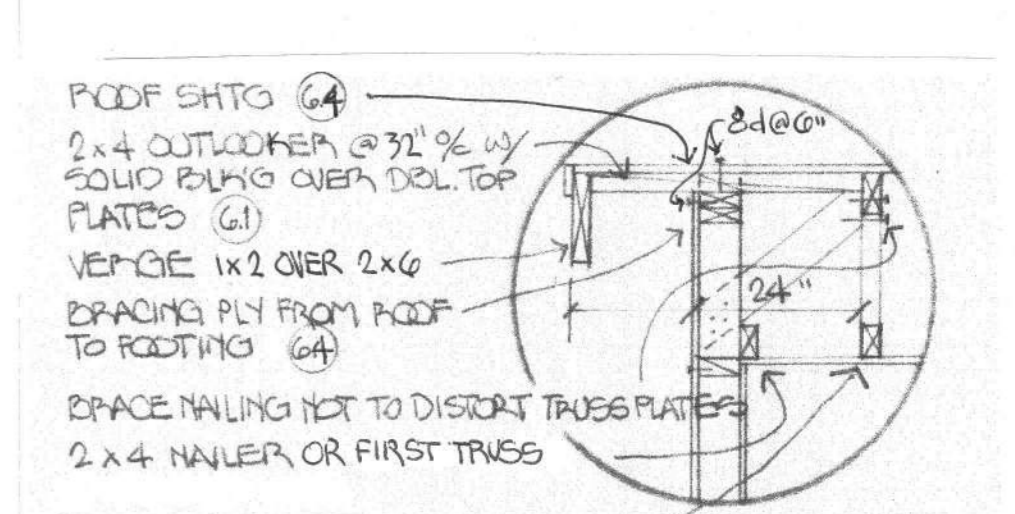 ROOF SHTG 6.4
2x4 OUTLOOKER @ 32" O/C W/
SOLID BLKG OVER DBL. TOP
PLATES 6.1
VERGE 1x2 OVER 2x6
BRACING PLY FROM ROOF
TO FOOTING 6.4
BRACE NAILING NOT TO DISTORT TRUSS PLATES
2 x 4 NAILER OR FIRST TRUSS
8d@6"
24"